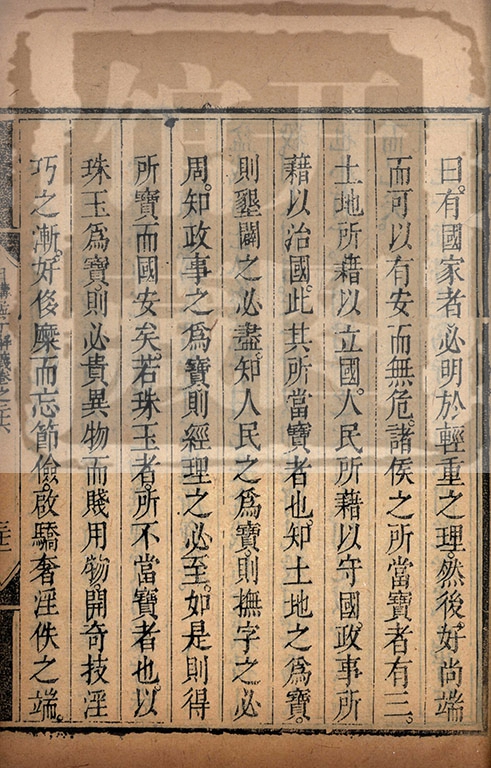 曰。有國家者必明於輕重之理。然後好尚端
而可以有安而無危。諸侯之所當寶者有三。
土地所藉以立國。人民所藉以守國。政事所
藉以治國。此其所當寶者也。知土地之爲寶。
則墾闢之必盡。知人民之爲寶。則撫字之必
周。知政事之爲寶則經理之必至。如是則得
所寶而國安矣。若珠玉者。所不當寶者也。以
珠玉爲寶。則必貴異物而賤用物開奇技淫
巧之漸。好侈靡而忘節儉。啟驕奢淫佚之端。
日講孟子解義卷之二十六